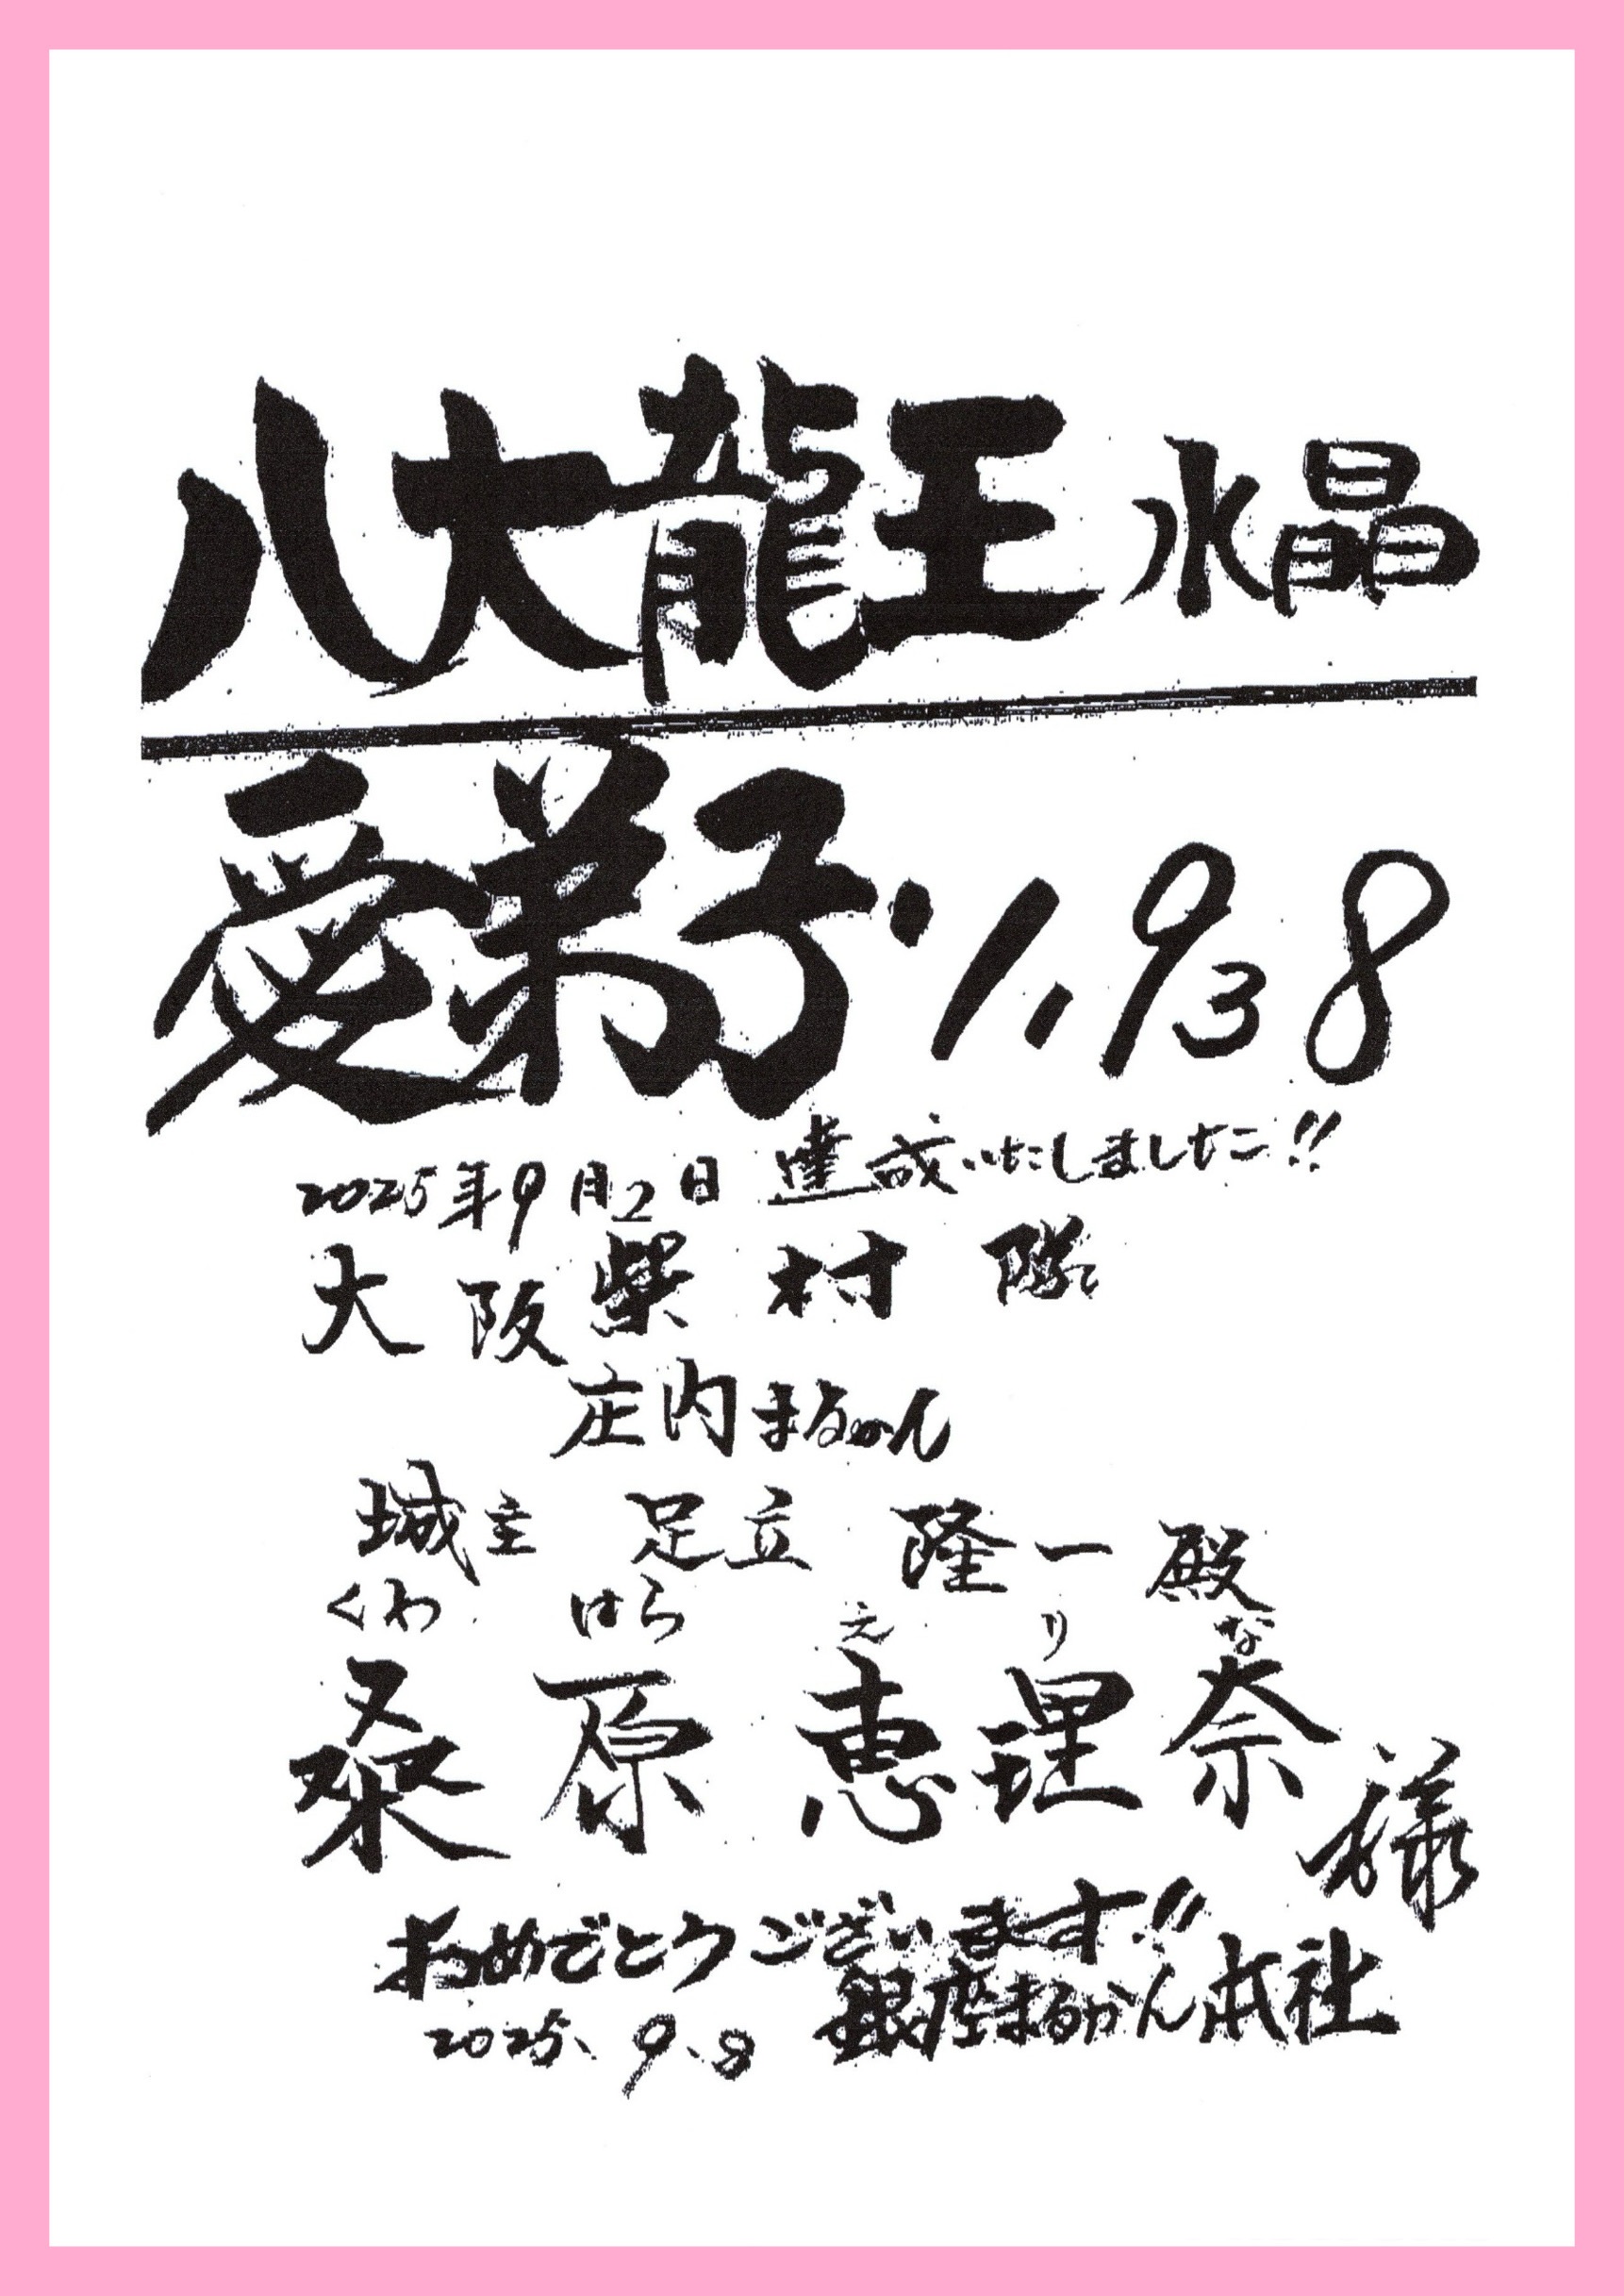 八大龍王 水晶
愛弟子・1,938
2025年9月2日 達成いたしました!!
大阪柴村隊
庄内まるかん
城主 足立 隆一殿
くわ はら え り な
桑原 恵理奈様
おめでとうございます!!
2025、9、8 銀座まるかん本社